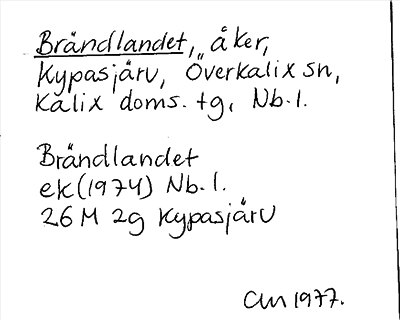 Brändlandet, åker,
Kypasjärv, Överkalix sn,
Kalix doms. tg, Nb. l.
Brändlandet
ek (1974) Nb. l.
26 M 2g Kypasjärv
CM 1977.